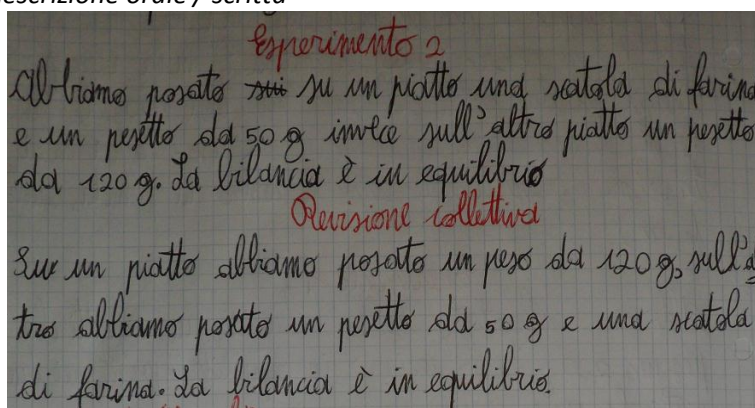 descrizione orale / scritta
Esperimento 2
Abbiamo posato su un piatto una scatola di farina
e un pesetto da 50 g invece sull'altro piatto un pesetto
da 120 g. La bilancia è in equilibrio
Revisione collettiva
Su un piatto abbiamo posato un peso da 120 g, sull'al
tro abbiamo posato un pesetto da 50 g e una scatola
di farina. La bilancia è in equilibrio.